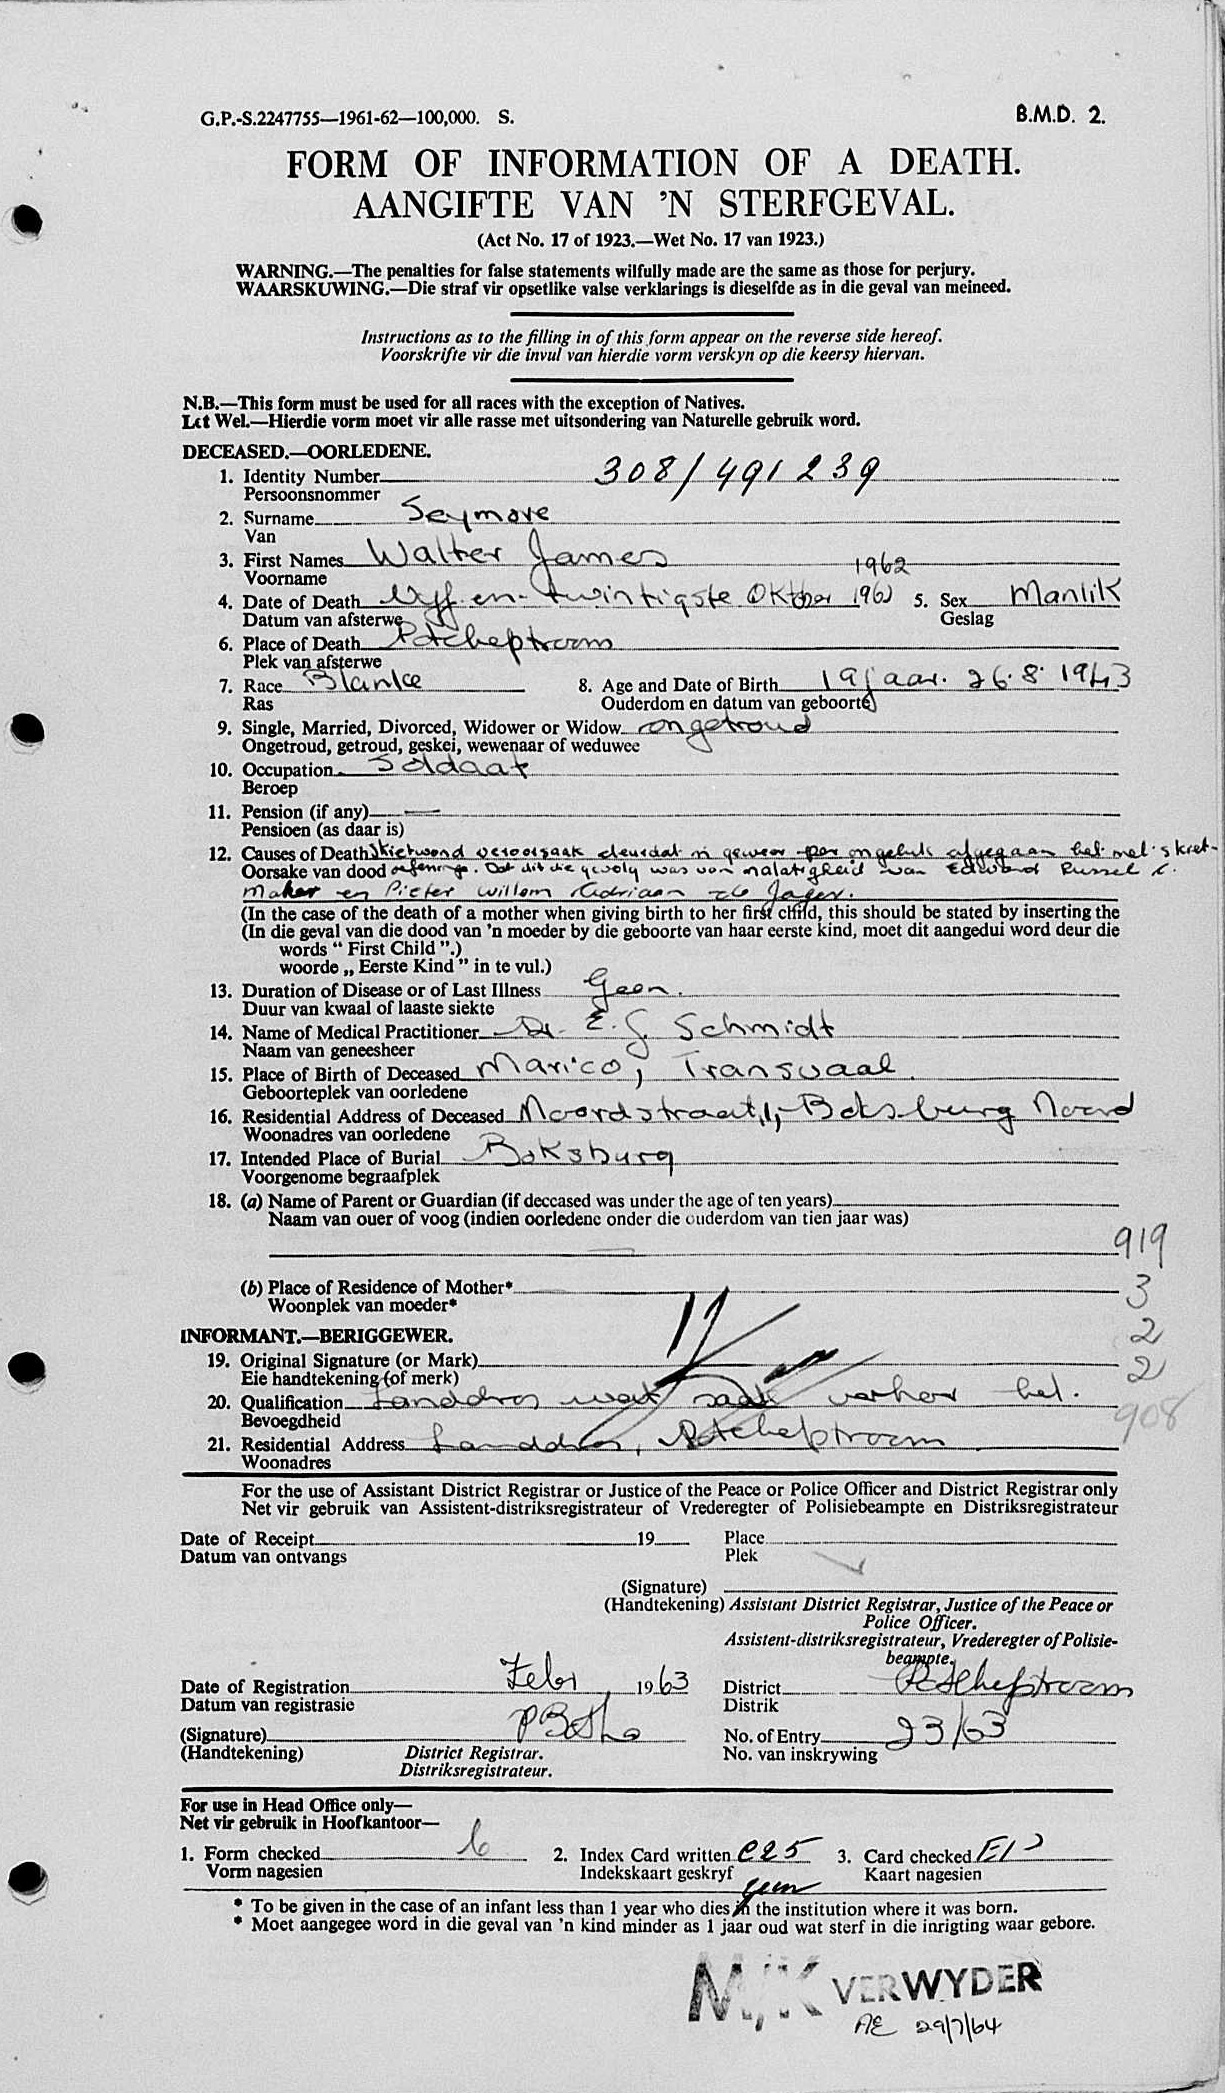 G.P.-S.2247755—1961-62—100,000. S.
B.M.D. 2.
FORM OF INFORMATION OF A DEATH.
AANGIFTE VAN 'N STERFGEVAL.
(Act No. 17 of 1923.—Wet No. 17 van 1923.)
WARNING.—The penalties for false statements wilfully made are the same as those for perjury.
WAARSKUWING.—Die straf vir opsetlike valse verklarings is dieselfde as in die geval van meineed.
Instructions as to the filling in of this form appear on the reverse side hereof.
Voorskrifte vir die invul van hierdie vorm verskyn op die keersy hiervan.
N.B.—This form must be used for all races with the exception of Natives.
Let Wel.—Hierdie vorm moet vir alle rasse met uitsondering van Naturelle gebruik word.
DECEASED.—OORLEDENE.
1. Identity Number 308/491239
Persoonsnommer
2. Surname Seymore
Van
3. First Names Walter James
Voorname
1962
4. Date of Death Vyf-en-twintigste Oktober 196 5. Sex Manlik
Datum van afsterwe Geslag
6. Place of Death Potchefstroom
Plek van afsterwe
7. Race Blanke 8. Age and Date of Birth 19 jaar. 26.8.1943
Ras Ouderdom en datum van geboorte
9. Single, Married, Divorced, Widower or Widow ongetroud
Ongetroud, getroud, geskei, wewenaar of weduwee
10. Occupation Soldaat
Beroep
11. Pension (if any) —
Pensioen (as daar is)
12. Causes of Death Skietwond veroorsaak deurdat 'n geweer per ongeluk afgegaan het met skiet-
Oorsake van dood oefening. Dat dit die gevolg was van nalatigheid van Edward Russel
maker en Pieter Willem Adriaan de Jager.
(In the case of the death of a mother when giving birth to her first child, this should be stated by inserting the
(In die geval van die dood van 'n moeder by die geboorte van haar eerste kind, moet dit aangedui word deur die
words " First Child ".)
woorde „ Eerste Kind " in te vul.)
13. Duration of Disease or of Last Illness Geen.
Duur van kwaal of laaste siekte
14. Name of Medical Practitioner Dr. E. J. Schmidt
Naam van geneesheer
15. Place of Birth of Deceased Marico, Transvaal.
Geboorteplek van oorledene
16. Residential Address of Deceased Noordstraat, 1, Boksburg Noord
Woonadres van oorledene
17. Intended Place of Burial Boksburg
Voorgenome begraafplek
18. (a) Name of Parent or Guardian (if deceased was under the age of ten years)
Naam van ouer of voog (indien oorledene onder die ouderdom van tien jaar was)
919
(b) Place of Residence of Mother* 3
Woonplek van moeder*
INFORMANT.—BERIGGEWER. 2
19. Original Signature (or Mark) 2
Eie handtekening (of merk)
20. Qualification Landdros wat saak verhoor het. 908
Bevoegdheid
21. Residential Address Landdros, Potchefstroom
Woonadres
For the use of Assistant District Registrar or Justice of the Peace or Police Officer and District Registrar only
Net vir gebruik van Assistent-distriksregistrateur of Vrederegter of Polisiebeampte en Distriksregistrateur
Date of Receipt 19 Place
Datum van ontvangs Plek
(Signature)
(Handtekening) Assistant District Registrar, Justice of the Peace or
Police Officer.
Assistent-distriksregistrateur, Vrederegter of Polisie-
beampte.
Date of Registration Febr 1963 District Potchefstroom
Datum van registrasie Distrik
(Signature) P Botha No. of Entry 23/63
(Handtekening) District Registrar. No. van inskrywing
Distriksregistrateur.
For use in Head Office only—
Net vir gebruik in Hoofkantoor—
1. Form checked 2. Index Card written C25 3. Card checked
Vorm nagesien Indekskaart geskryf Kaart nagesien
* To be given in the case of an infant less than 1 year who dies in the institution where it was born.
* Moet aangegee word in die geval van 'n kind minder as 1 jaar oud wat sterf in die inrigting waar gebore.
M/K VERWYDER
AE 29/7/64